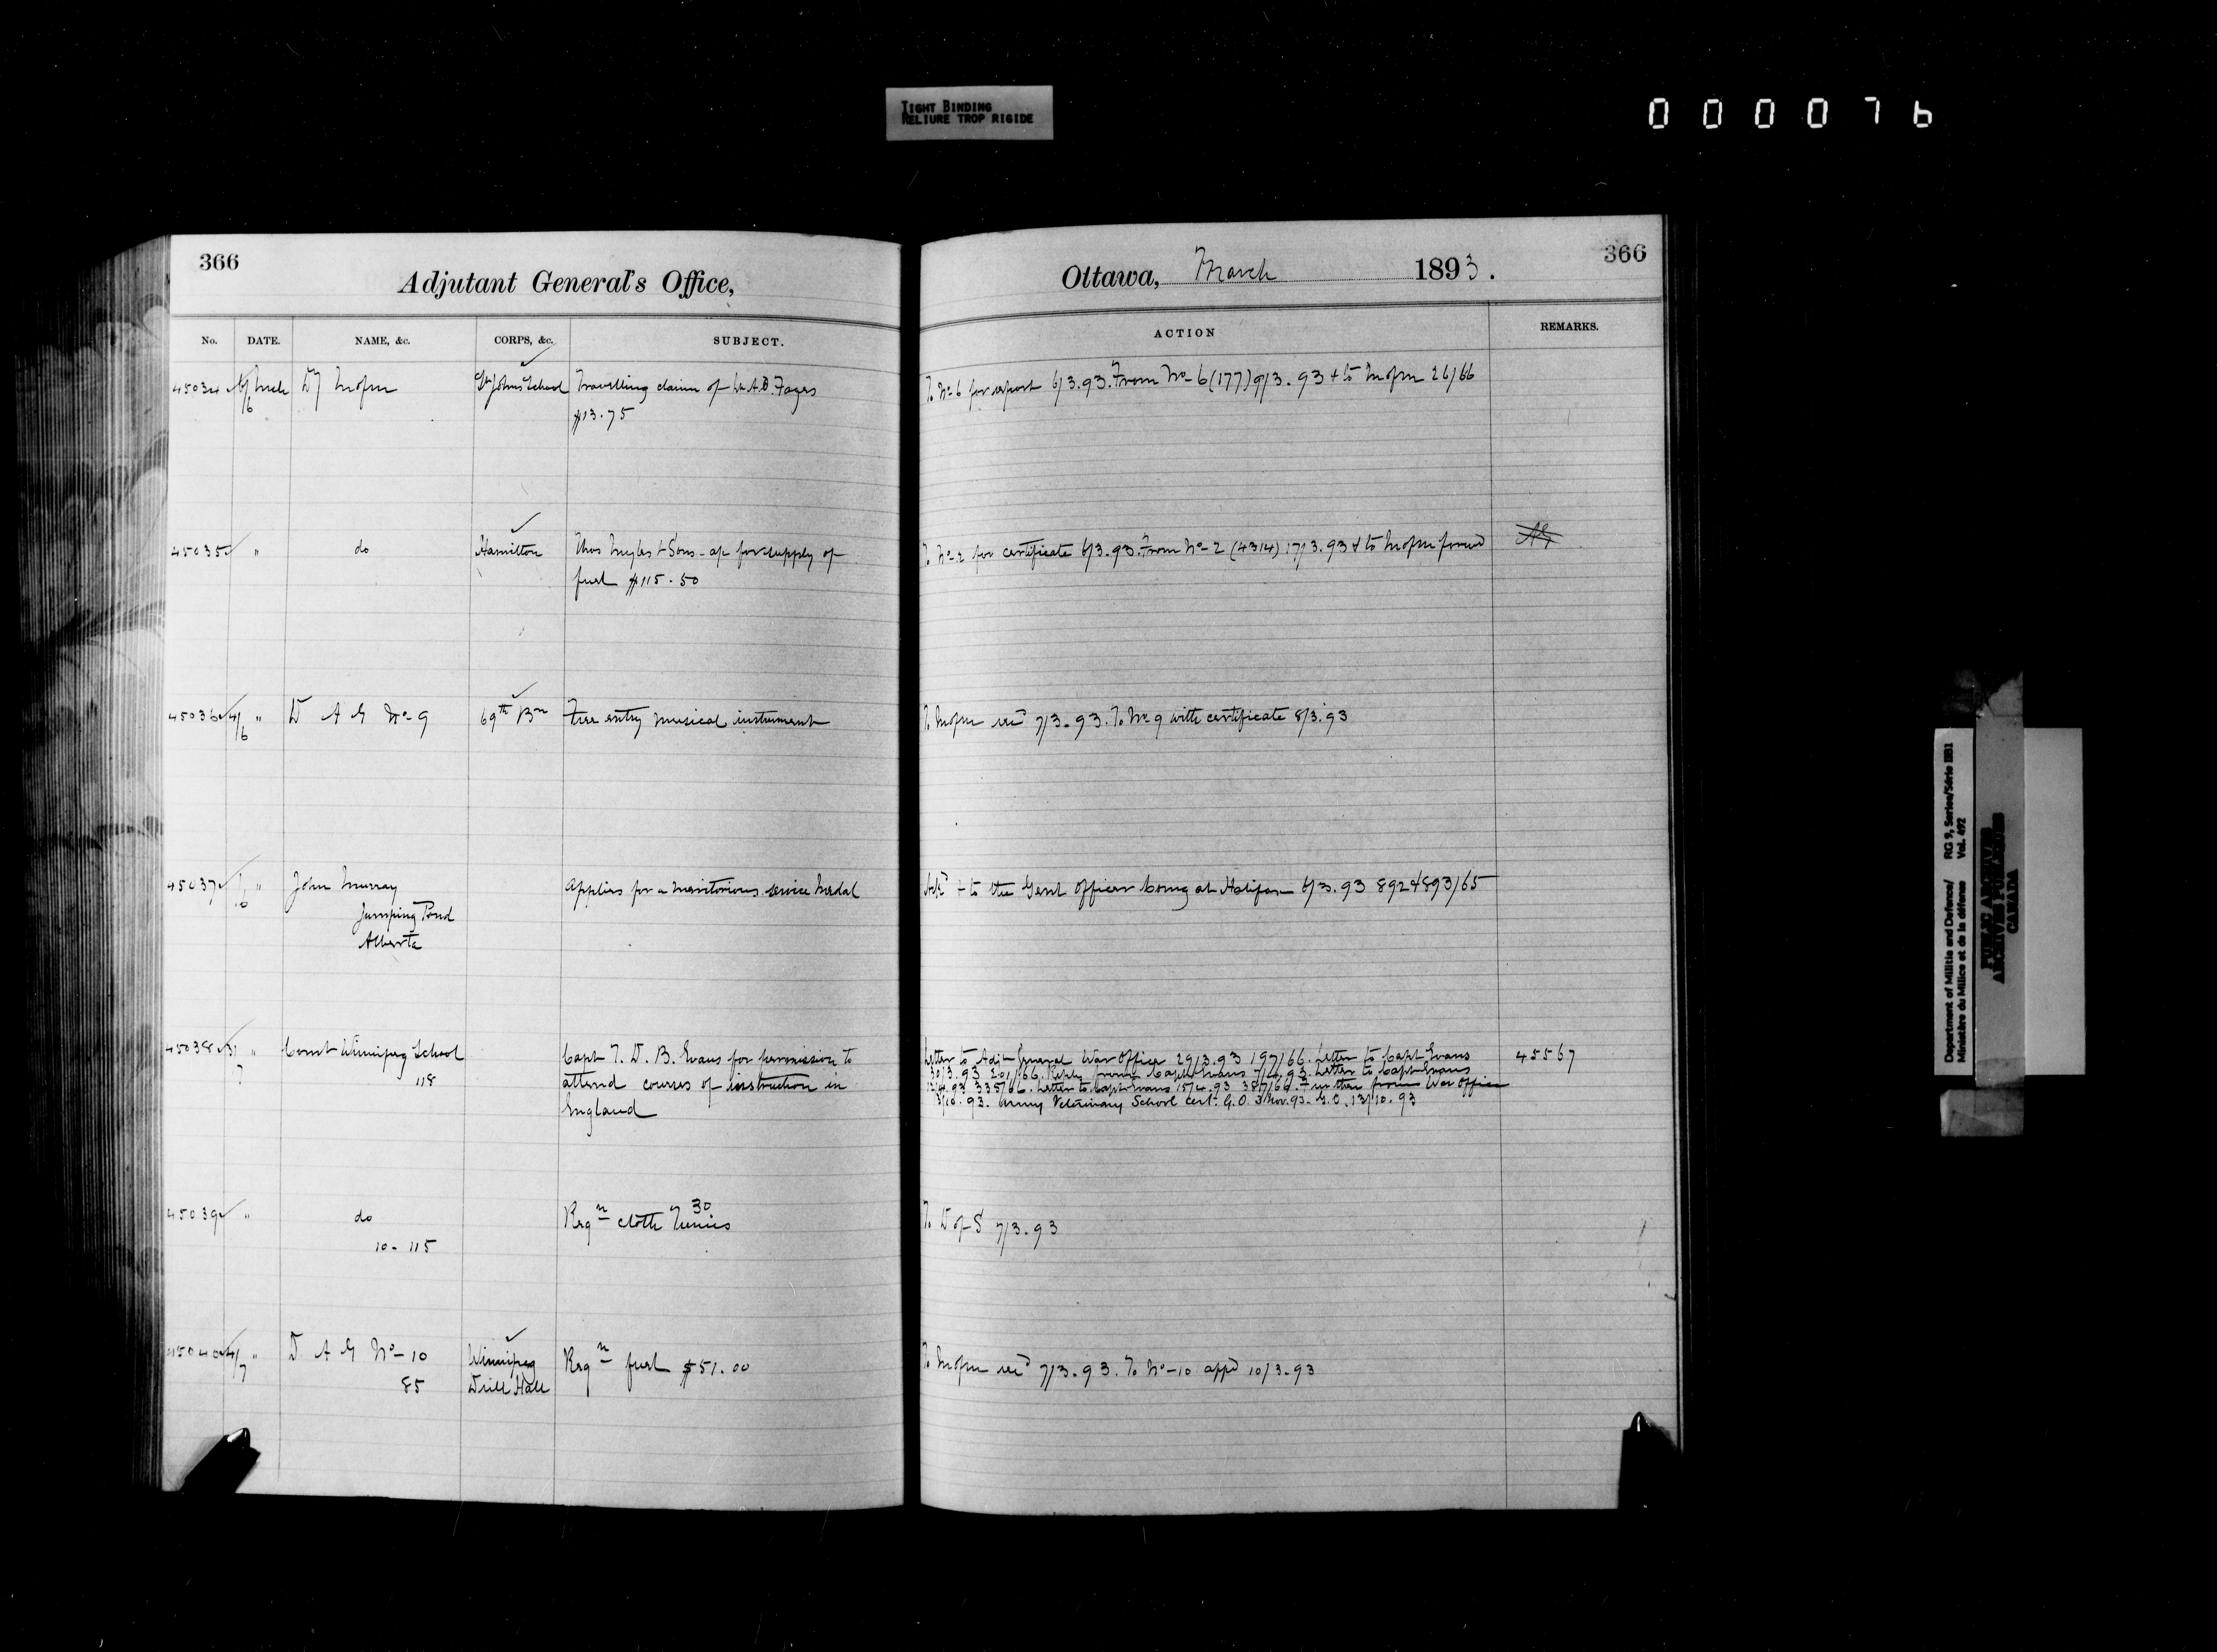 TIGHT BINDING
RELIURE TROP RIGIDE
000076
366
Adjutant General's Office,
Ottawa, March 1893.
366
No. DATE. NAME, &c. CORPS, &c. SUBJECT.
ACTION REMARKS.
45034 6/6 Mch St Johns School Travelling claim of
$13.75
To No 6 for report 6/3.93. From No 6 (177) 9/3.93 + to 26/66
45035 " do Hamilton Thos Myles & Sons - a/c for supply of
fuel $115.50
To No 2 for certificate 6/3.93. From No 2 (4314) 17/3.93 & to
45036 4/6 " D A G No 9 69th Bn Free entry musical instrument
7/3.93. To No 9 with certificate 8/3.93
45037 1/6 " John Murray Applies for a meritorious service medal
Jumping Pond
Alberta
+ to the Genl Officer Comg at Halifax 6/3.93 892 & 893/65
45038 3/7 " Comt Winnipeg School Capt T. D. B. Evans for permission to
118 attend courses of instruction in
England
Letter to Adjt General War Office 29/3.93 197/66. Letter to Capt Evans 45567
30/3.93 201/66. Reply from Capt Evans 7/4.93. Letter to Capt Evans
12/4.93 335/66. Letter to Capt Evans 15/4.93 387/66. Further from War Office
3/10.93. Army Veterinary School Cert. G.O. 3 Nov. 93. G.O. 13/10.93
45039 " do Reqn cloth Tunics 30
10-115
To D of S 7/3.93
45040 4/7 " D A G No-10 Winnipeg Reqn fuel $51.00
85 Drill Hall
7/3.93. To No-10 appd 10/3.93
Department of Militia and Defence/ RG 9, Series/Série IIB1
Ministère du Milice et de la défense Vol. 492
PUBLIC ARCHIVES
ARCHIVES PUBLIQUES
CANADA